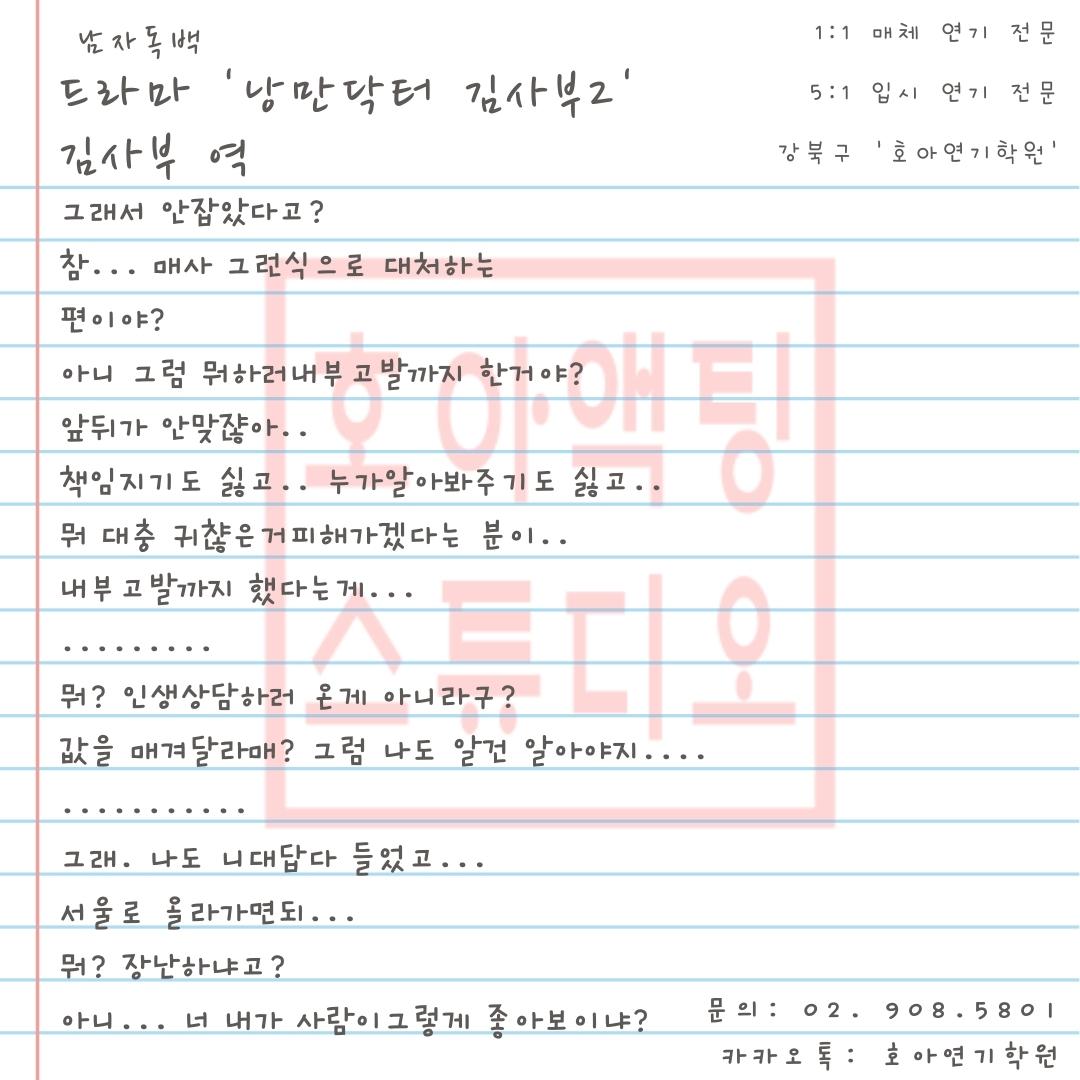 남자독백
드라마 '낭만닥터 김사부2'
김사부 역
1:1 매체 연기 전문
5:1 입시 연기 전문
강북구 '호아연기학원'
그래서 안잡았다고?
참... 매사 그런식으로 대처하는
편이야?
아니 그럼 뭐하러내부고발까지 한거야?
앞뒤가 안맞쟎아..
책임지기도 싫고.. 누가알아봐주기도 싫고..
뭐 대충 귀챦은거피해가겠다는 분이..
내부고발까지 했다는게...
.........
뭐? 인생상담하러 온게 아니라구?
값을 매겨달라매? 그럼 나도 알건 알아야지....
...........
그래. 나도 니대답다 들었고...
서울로 올라가면되...
뭐? 장난하냐고?
아니... 너 내가 사람이그렇게 좋아보이냐?
문의: 02. 908.5801
카카오톡: 호아연기학원
호아·액팅
스튜디오